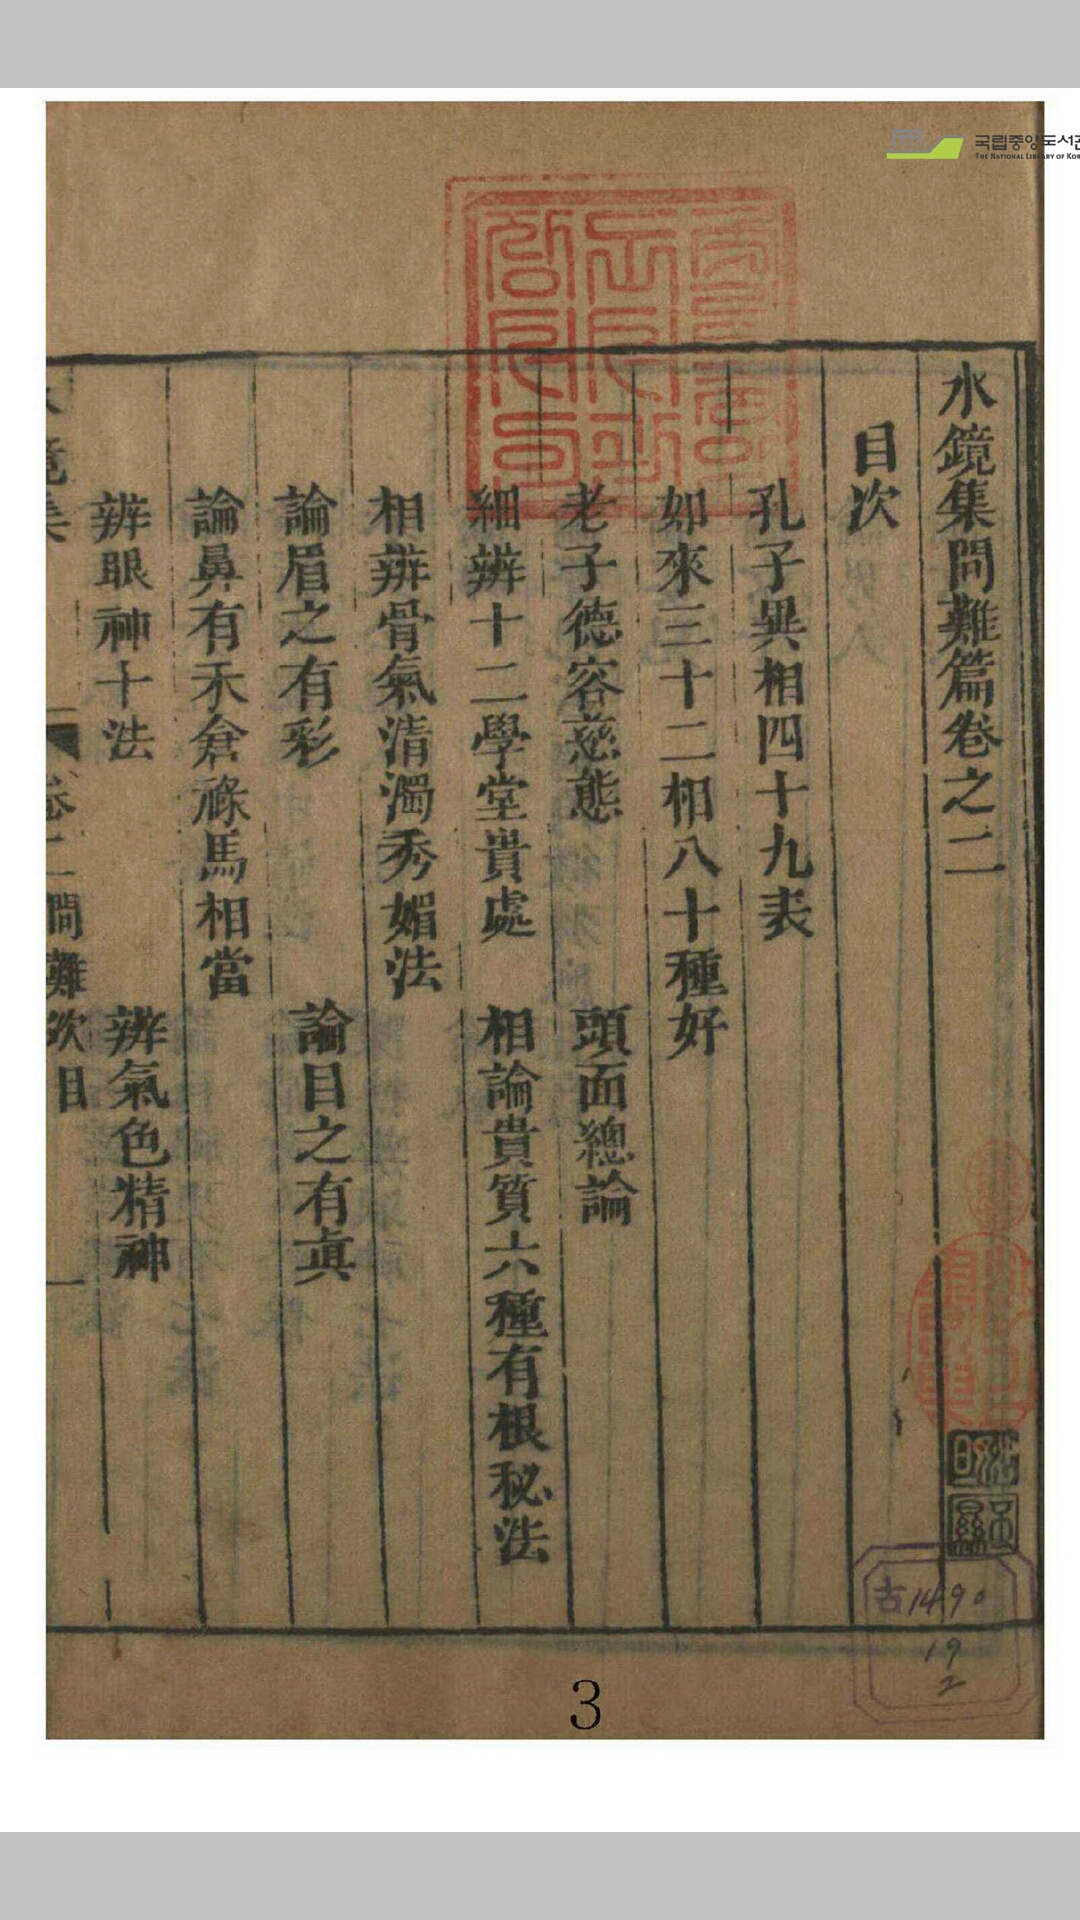 국립중앙도서관
THE NATIONAL LIBRARY OF KOR
水鏡集問難篇卷之二
目次
孔子異相四十九表
如來三十二相八十種好
老子德容慈態 頭面總論
細辨十二學堂貴處 相論貴質六種有根秘法
相辨骨氣清濁秀媚法
論眉之有彩 論目之有眞
論鼻有禾倉祿馬相當
辨眼神十法 辨氣色精神
卷二 問難 次目 一
古1490
19
2
3